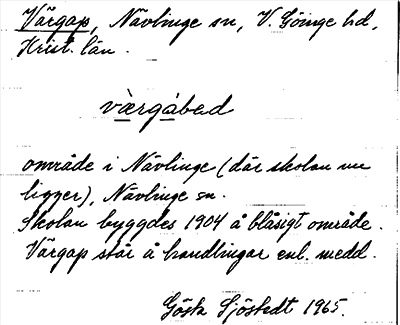 Värgap, Nävlinge sn, V. Göinge hd,
Krist. län.
værgàbed
område i Nävlinge (där skolan nu
ligger), Nävlinge sn.
Skolan byggdes 1904 å blåsigt område.
Värgap står å handlingar enl. medd.
Gösta Sjöstedt 1965.